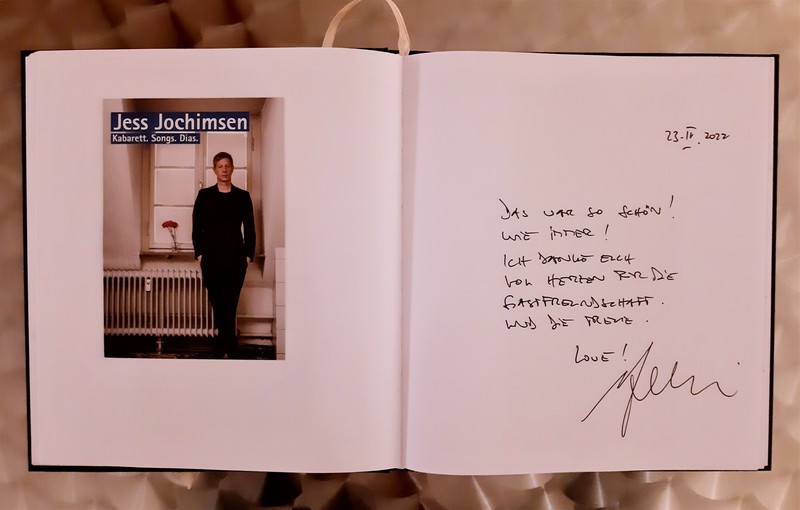 Jess Jochimsen
Kabarett. Songs. Dias.
23. IV. 2022
DAS WAR SO SCHÖN!
WIE IMMER!
ICH DANKE EUCH
VON HERZEN FÜR DIE
GASTFREUNDSCHAFT.
UND DIE
LOVE!